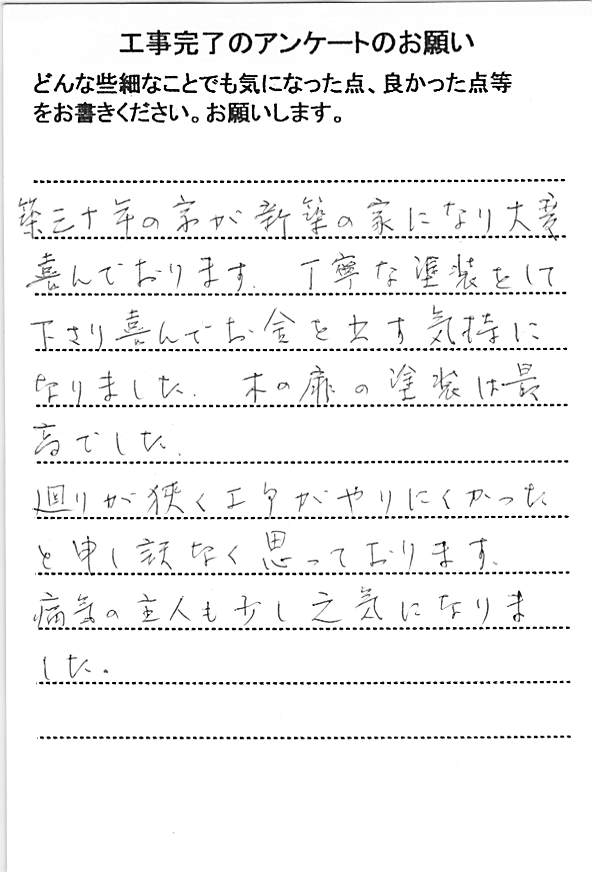 工事完了のアンケートのお願い
どんな些細なことでも気になった点、良かった点等
をお書きください。お願いします。
築三十年の家が新築の家になり大変
喜んでおります。丁寧な塗装をして
下さり喜んでお金を出す気持に
なりました。木の扉の塗装は最
高でした。
廻りが狭く工事がやりにくかった
と申し訳なく思っております。
病気の主人も少し元気になりま
した。